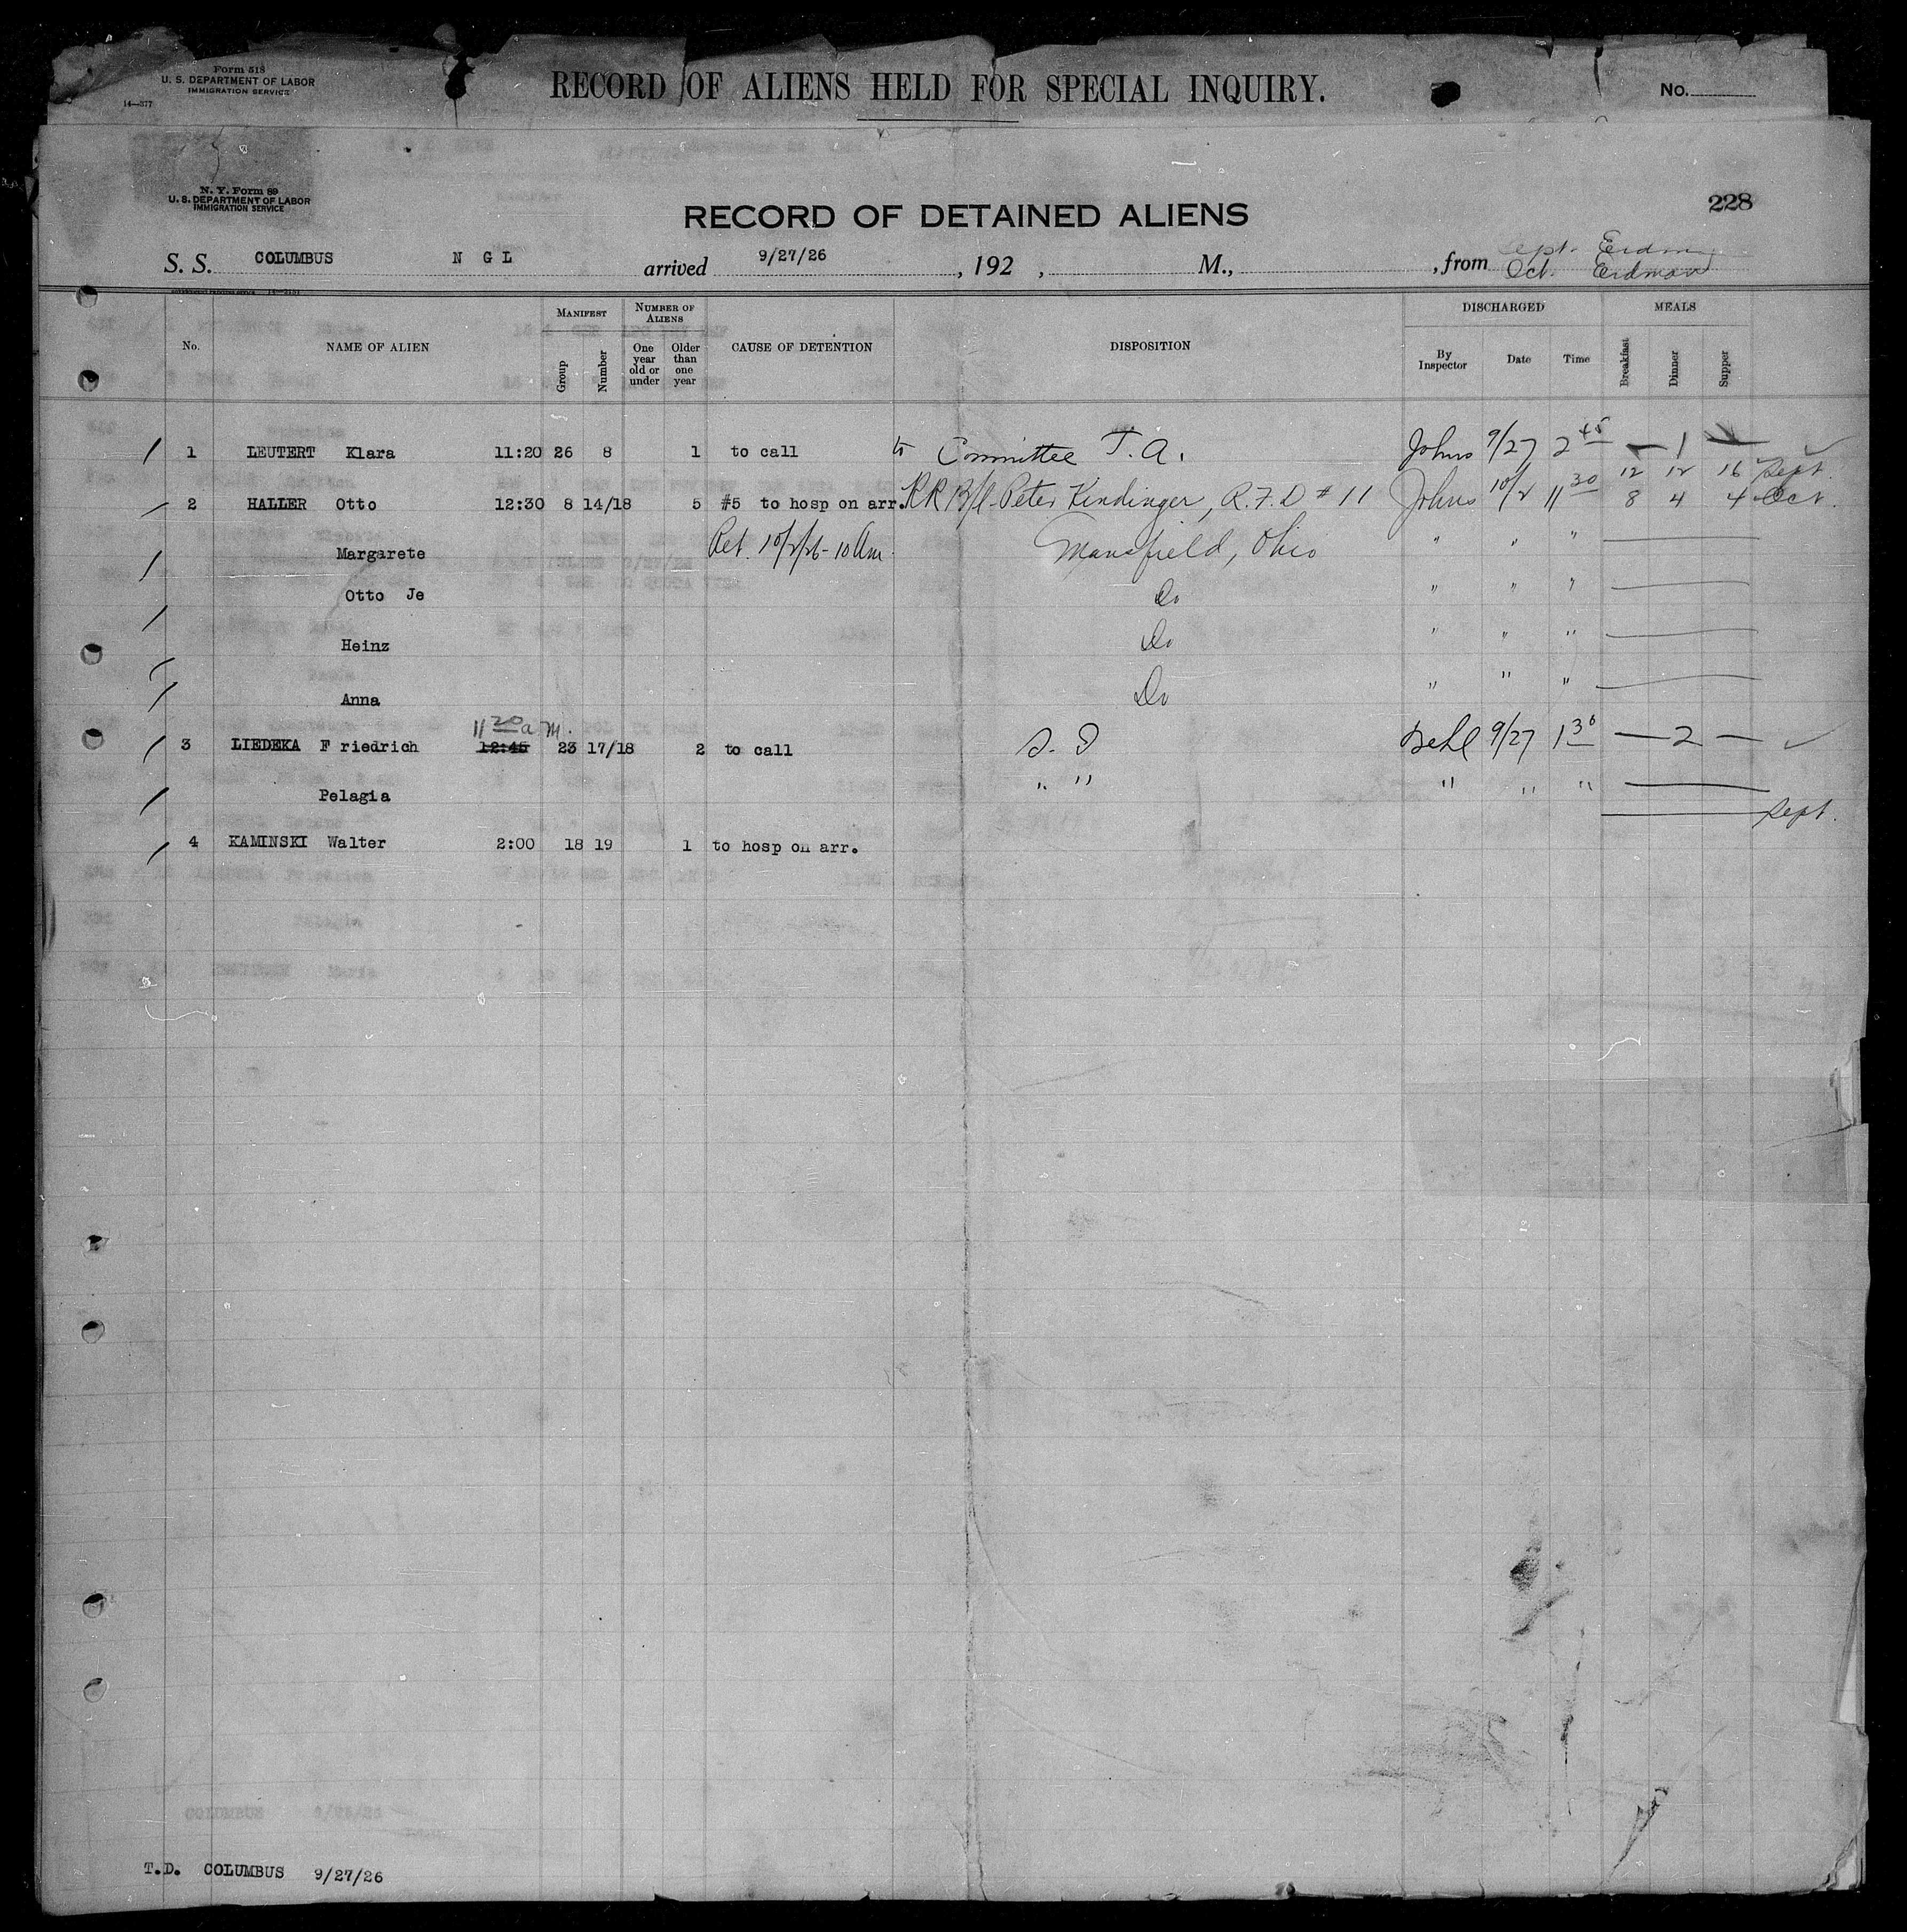 Form 518
U. S. DEPARTMENT OF LABOR
IMMIGRATION SERVICE
14—377
RECORD OF ALIENS HELD FOR SPECIAL INQUIRY.
No.
N. Y. Form 89
U. S. DEPARTMENT OF LABOR
IMMIGRATION SERVICE
228
RECORD OF DETAINED ALIENS
Sept. Erdman
S. S. COLUMBUS N G L arrived 9/27/26, 192 , M., , from Oct. Erdman
MANIFEST NUMBER OF ALIENS DISCHARGED MEALS
No. NAME OF ALIEN Group Number One year old or under Older than one year CAUSE OF DETENTION DISPOSITION By Inspector Date Time Breakfast Dinner Supper
1 LEUTERT Klara 11:20 26 8 1 to call to Committee T. A. Johns 9/27 2 45 — 1 —
12 12 16 Sept.
2 HALLER Otto 12:30 8 14/18 5 #5 to hosp on arr. RR B/l Peter Kindinger, R.F.D # 11 Johns 10/2 11 30 8 4 4 Oct.
Margarete Ret. 10/2/26 - 10 Am. Mansfield, Ohio " " "
Otto Je Do " " "
Heinz Do " " "
Anna Do " " "
11 20 a m.
3 LIEDEKA F riedrich 12:45 23 17/18 2 to call S. I Behl 9/27 1 30 — 2 —
Pelagia " " " " "
Sept.
4 KAMINSKI Walter 2:00 18 19 1 to hosp on arr.
T.D. COLUMBUS 9/27/26